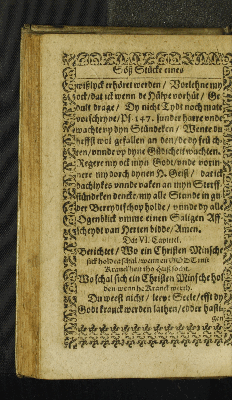 Söß Stücke eines
wißlyck erhöret werden / Vorlehne my
ock / dat ick wenn de Hülpe vorhüt / Ge
dult drage / Dy nicht Tydt noch mate
vorschryve / Ps. 147. sunder harre unde
wachte up dyn Stündeken / Wente du
heffst wol gefallen an den / de dy
ten / unde up dyne Güdicheit wachten.
Regere my ock myn Godt / unde
my dorch dynen H. Geist / dat ick
dachlykes unde vaken an myn Sterff
stündeken dencke / my alle Stunde in gu
der Bereydtschop holde / unde dy alle
Ogenblick umme einen Saligen Aff-
scheydt van Herten bidde / Amen.
Dat VI. Capittel.
Berichtet / Wo ein Christen Minsche
sick holden schal / wenn en GODT mit
Kranckheit tho Huß socht.
Wo schal sich ein Christen Minsche hol
den wenn he Kranck werth.
Du weest nicht / leeve Seele / effst dy
Godt kranck werden lathen / edder hasti-
gen